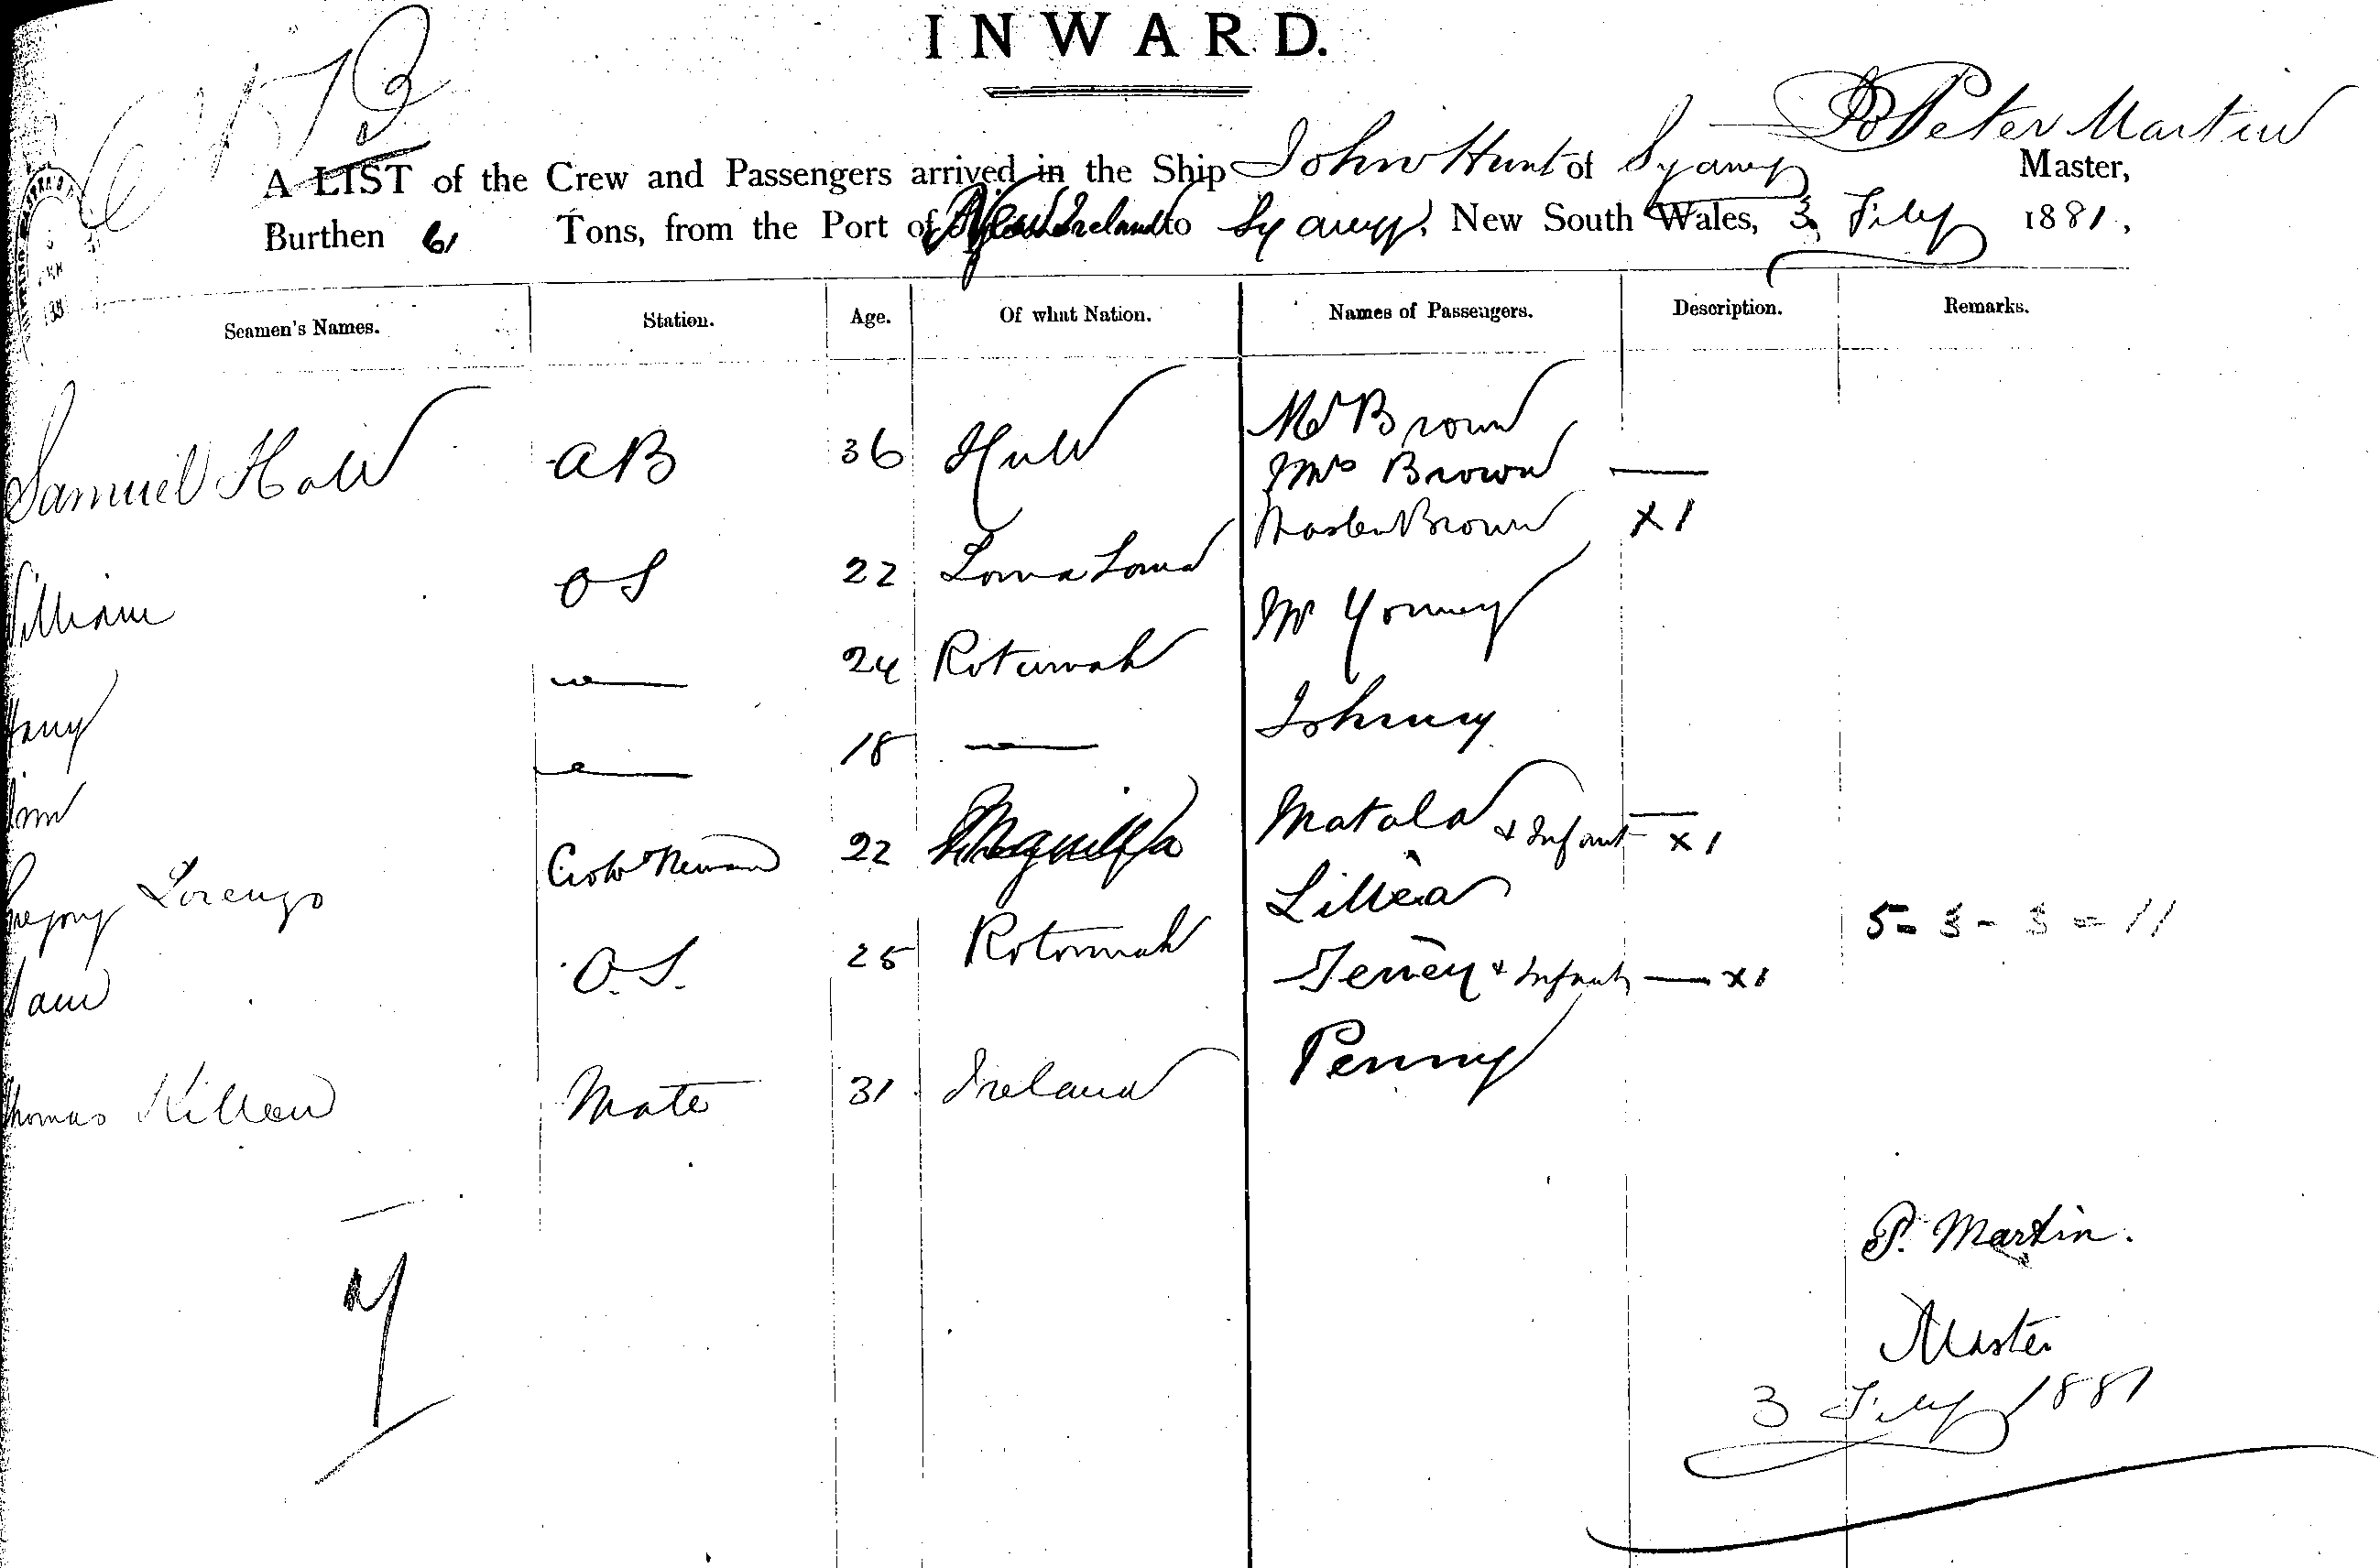 INWARD.
Peter Martin
A LIST of the Crew and Passengers arrived in the Ship John Hunt of Sydney Master,
Burthen 61 Tons, from the Port of New Ireland to Sydney, New South Wales, 3 July 1881.
Seamen's Names. Station. Age. Of what Nation. Names of Passengers. Description. Remarks.
Mr Brown
Samuel Hall AB 36 Hull Mrs Brown —
Master Brown X 1
William OS 22 Loma Loma
Mr Young
24 Rotumah
Johnny
18
Matala & Infant — X 1
Lorenzo 22
Lillea
5 - 3 - 3 = 11
Sam O.S. 25 Rotumah
& Infant — X 1
Penny
Thomas Killen Mate 31 Ireland
7
P. Martin.
Master
3 July 1881